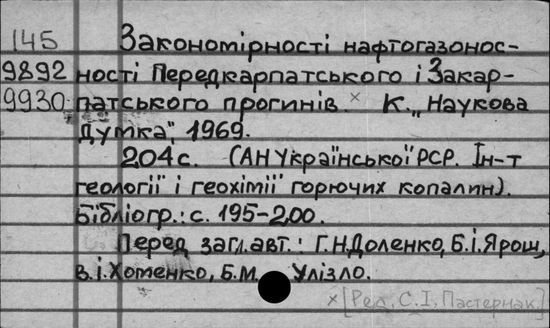 145 Закономірності нафтогазонос-
9892 ності Передкарпатського і Закар-
9930 патського прогинів. × К. „Наукова
думка", 1969.
204 с. (АН Української РСР. Ін-т
геології і геохімії горючих копалин).
Бібліогр.: с. 195-200.
Перед загл. авт.: Г.Н. Доленко, Б.і. Ярош,
В.і. Хоменко, Б.М. Улізло.
×[Ред. С.І. Пастернак]